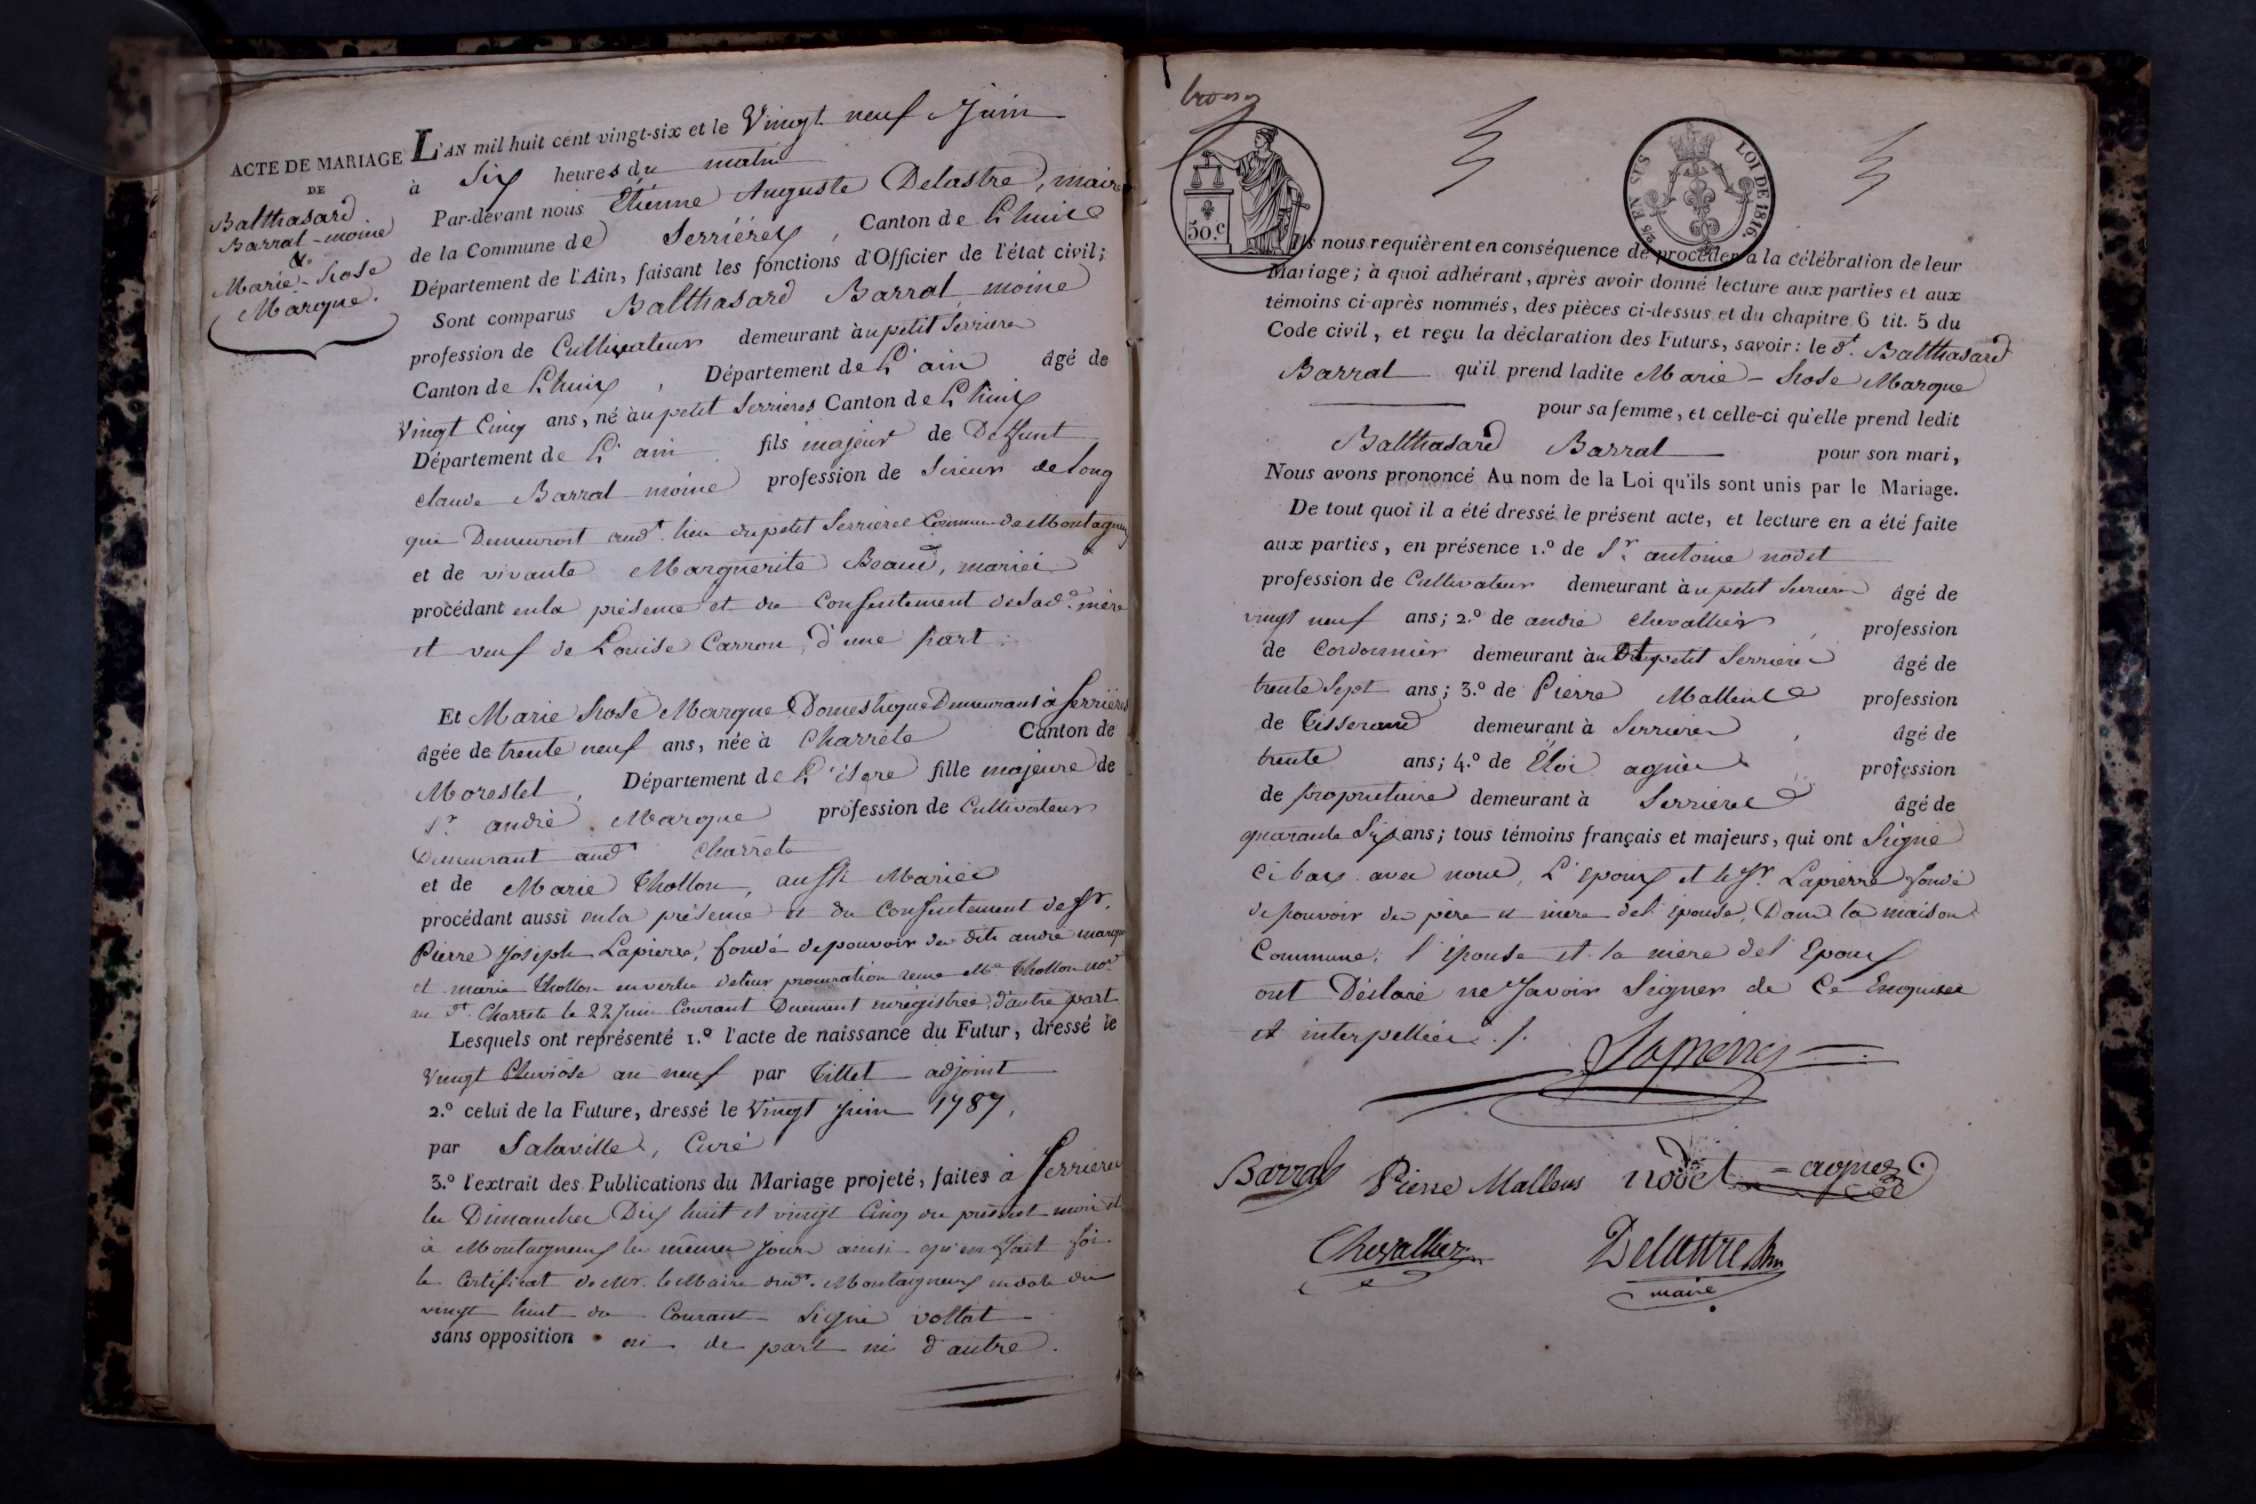 ACTE DE MARIAGE
DE
Balthasard
Barral-moine
&
Marie-Rose
Marque.
L'AN mil huit cent vingt-six et le Vingt neuf Juin
à Six heures du matin
Par-devant nous Etienne Auguste Delastre, maire
de la Commune de Serrières, Canton de Lhuis
Département de l'Ain, faisant les fonctions d'Officier de l'état civil;
Sont comparus Balthasard Barral moine
profession de Cultivateur demeurant à u petit Serrieres
Canton de Lhuis, Département de L'ain âgé de
Vingt Cinq ans, né à u petit Serrieres Canton de Lhuis
Département de L'ain fils majeur de Defunt
claude Barral moine profession de Scieur de long
qui Demeuroit aud.t lieu du petit Serrieres Commune de Montagnieu
et de vivante Marguerite Beaud, mariés
procédant en la présence et du Consentement de sad.e mère
et veuf de Louise Carron, d'une part.
Et Marie Rose Marque Domestique Demeurant à Serrières
âgée de trente neuf ans, née à Charrête Canton de
Morestel, Département de L'isere fille majeure de
S.r andré Marque profession de Cultivateur
Demeurant aud.t Charrête
et de Marie Thollon, aussi Mariés
procédant aussi en la présence et du Consentement de Sr.
Pierre Joseph Lapierre, fondé de pouvoir des dits andré marque
et marie Thollon en vertu de leur procuration reçue M.e Thollon no.re
au d.t Charrete le 22 Juin Courant Duement enregistrée, d'autre part
Lesquels ont représenté 1.º l'acte de naissance du Futur, dressé le
Vingt Pluviôse an neuf par Tillet adjoint
2.º celui de la Future, dressé le Vingt Juin 1787,
par Salaville, Curé
3.º l'extrait des Publications du Mariage projeté, faites à Serrieres
les Dimanches Dix huit et vingt Cinq du présent mois et
à Montagnieux les mêmes jours ainsi qu'en fait foi
le Certificat de Mr. le Maire dud.t Montagnieux en date du
vingt huit du Courant Signé vottat
sans opposition ni de part ni d'autre.
50.c
25 EN SUS
LOI DE 1816.
Ils nous requièrent en conséquence de procéder à la célébration de leur
Mariage; à quoi adhérant, après avoir donné lecture aux parties et aux
témoins ci-après nommés, des pièces ci-dessus et du chapitre 6 tit. 5 du
Code civil, et reçu la déclaration des Futurs, savoir: le d.t Balthasard
Barral qu'il prend ladite Marie-Rose Marque
pour sa femme, et celle-ci qu'elle prend ledit
Balthasard Barral pour son mari,
Nous avons prononcé Au nom de la Loi qu'ils sont unis par le Mariage.
De tout quoi il a été dressé le présent acte, et lecture en a été faite
aux parties, en présence 1.º de S.r antoine nodet
profession de Cultivateur demeurant à u petit Serrieres âgé de
vingt neuf ans; 2.º de andré Chevallier, profession
de Cordonnier demeurant à u petit Serrieres âgé de
trente Sept ans; 3.º de Pierre Mallens profession
de Tisserand demeurant à Serrieres, âgé de
trente ans; 4.º de Éloi agnès profession
de propriétaire demeurant à Serrieres âgé de
quarante Six ans; tous témoins français et majeurs, qui ont Signé
Ci bas avec nous, L'epoux et le Sr. Lapierre fondé
de pouvoir des père et mère de l'épouse, Dans la maison
Commune; l'épouse et la mère de l'Epoux
ont Déclaré ne Savoir Signer de Ce Enquises
et interpellées ./.
Lapierre
Barral Pierre Mallens nodet agnes
Chevallier Delastre
maire